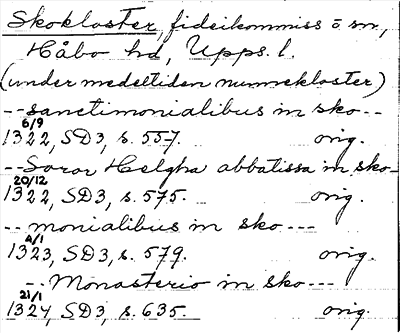 Skokloster, fideikommiss o sn,
Håbo hd, Upps. l.
(under medeltiden nunnekloster)
-- sanctimonialibus in sko --
6/9
1322, SD3, s. 557. orig.
-- Soror Helgha abbatissa in sko -
20/12
1322, SD3, s. 575. orig.
-- monialibus in sko ---
4/1
1323, SD3, s. 579. orig.
-- Monasterio in sko ---
21/1
1324, SD3, s. 635. orig.